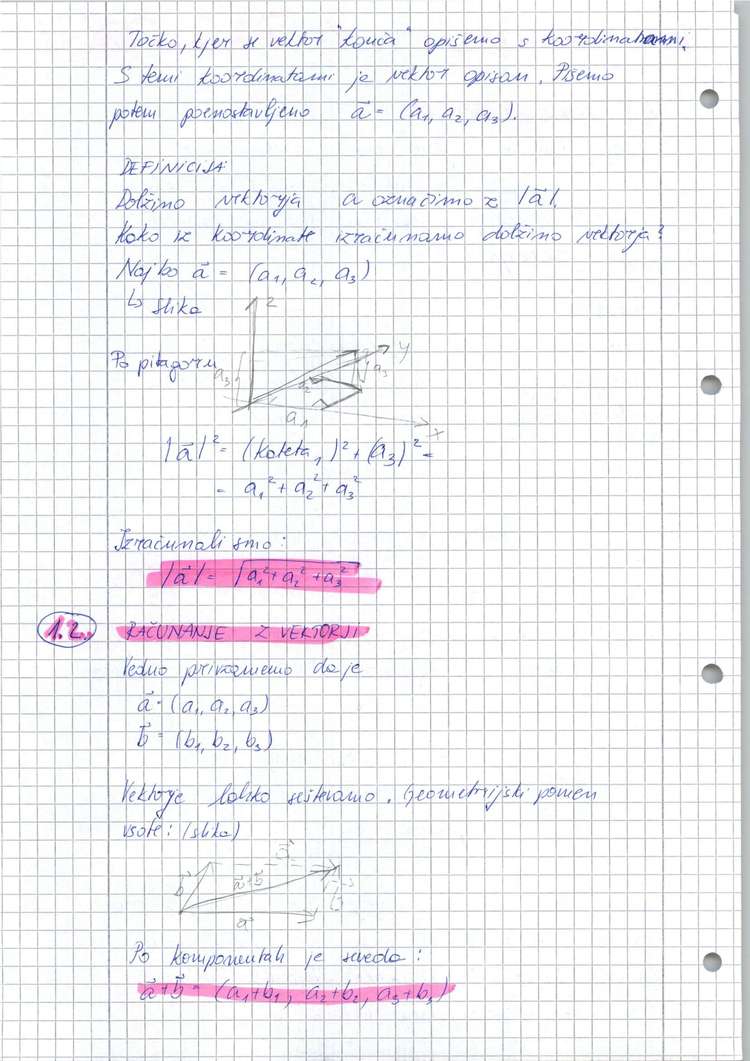 Točko, kjer se vektor "konča" opišemo s koordinatami.
S temi koordinatami je vektor opisan. Pišemo
potem poenostavljeno a⃗ = (a₁, a₂, a₃).
DEFINICIJA
Dolžino vektorja a označimo z |a⃗|.
Kako iz koordinate izračunamo dolžino vektorja?
Naj bo a⃗ = (a₁, a₂, a₃)
↳ slika
z
Po pitagoru
y
a₃
a₂
a₃
a₁
x
|a⃗|² = (kateta₁)² + (a₃)² =
= a₁² + a₂² + a₃²
Izračunali smo:
|a⃗| = √a₁² + a₂² + a₃²
1.2. RAČUNANJE Z VEKTORJI
Vedno privzamemo da je
a⃗ = (a₁, a₂, a₃)
b⃗ = (b₁, b₂, b₃)
Vektorje lahko seštevamo. Geometrijski pomen
vsote: (slika)
a⃗
b⃗ a⃗+b⃗ b⃗
a⃗
Po komponentah je seveda:
a⃗+b⃗ = (a₁+b₁, a₂+b₂, a₃+b₃)